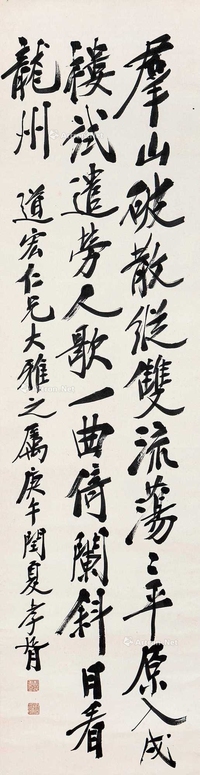 羣山破散從雙流蕩〻平原入戍
樓試遣勞人歌一曲倚闌斜日看
龍州　道宏仁兄大雅之屬庚午閏夏孝胥